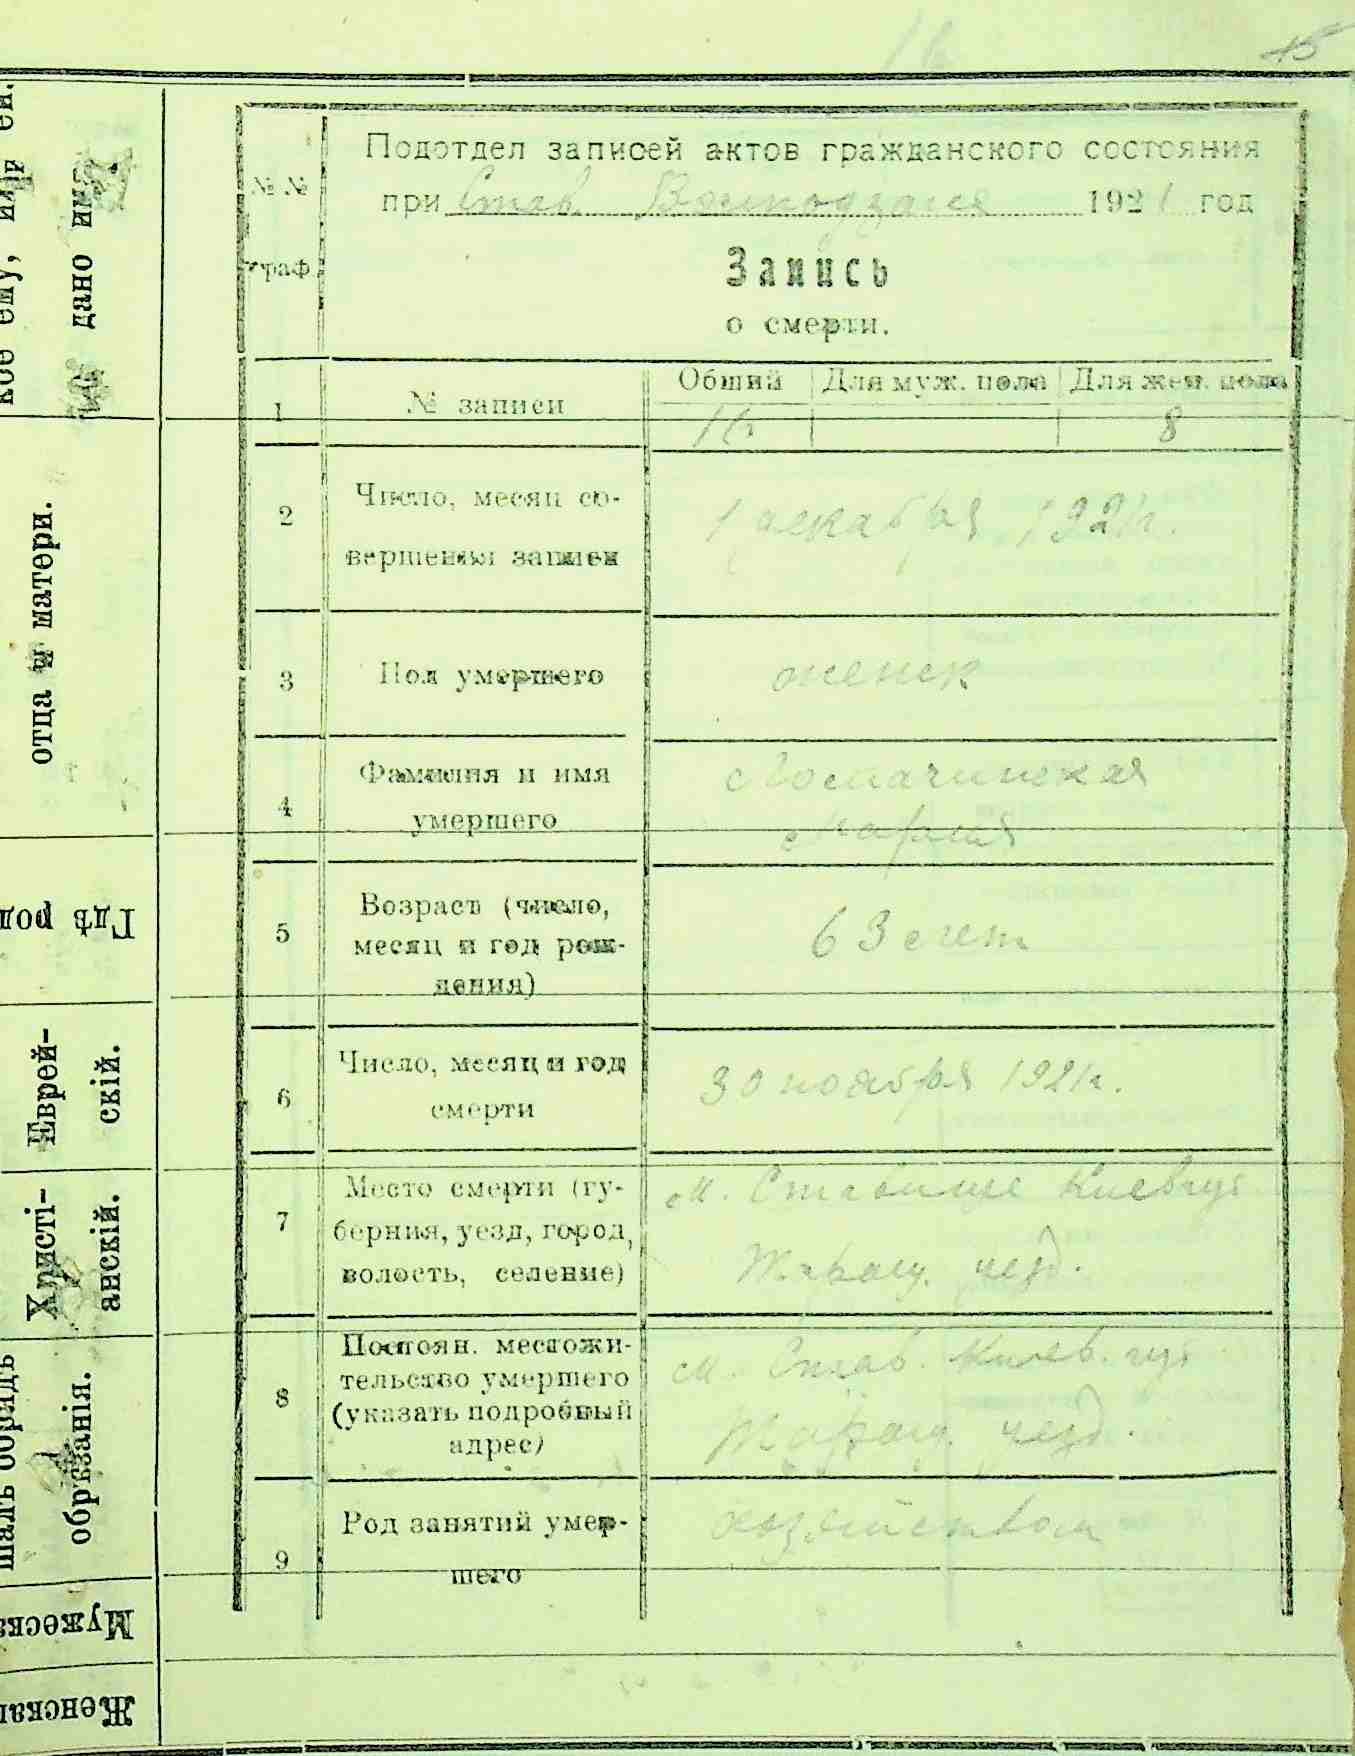 16
15
Подотдел записей актов гражданского состояния
при Став. 1921 год
№ №
граф.
Запись
о смерти.
1 № записи
Общий Для муж. пола Для жен. пола
16 8
2 Число, месяц со-
вершения записи
1 декабря 1921 г.
3 Пол умершего
женск
4 Фамилия и имя
умершего
Мария
5 Возраст (число,
месяц и год рож-
дения)
63 лет
6 Число, месяц и год
смерти
30 ноября 1921 г.
7 Место смерти (гу-
берния, уезд, город,
волость, селение)
м. Ставище Киев губ
Тиращ. уезд.
8 Постоян. местожи-
тельство умершего
(указать подробный
адрес)
м. Став. Киев. губ
Таращ. уезд.
9 Род занятий умер-
шего
хозяйством
кое ему, или ей.
дано имя.
отца и матери.
Гдѣ род
Еврей-
скій.
Христі-
анскій.
шалъ обрядъ
обрѣзанія.
Мужеска
Женская